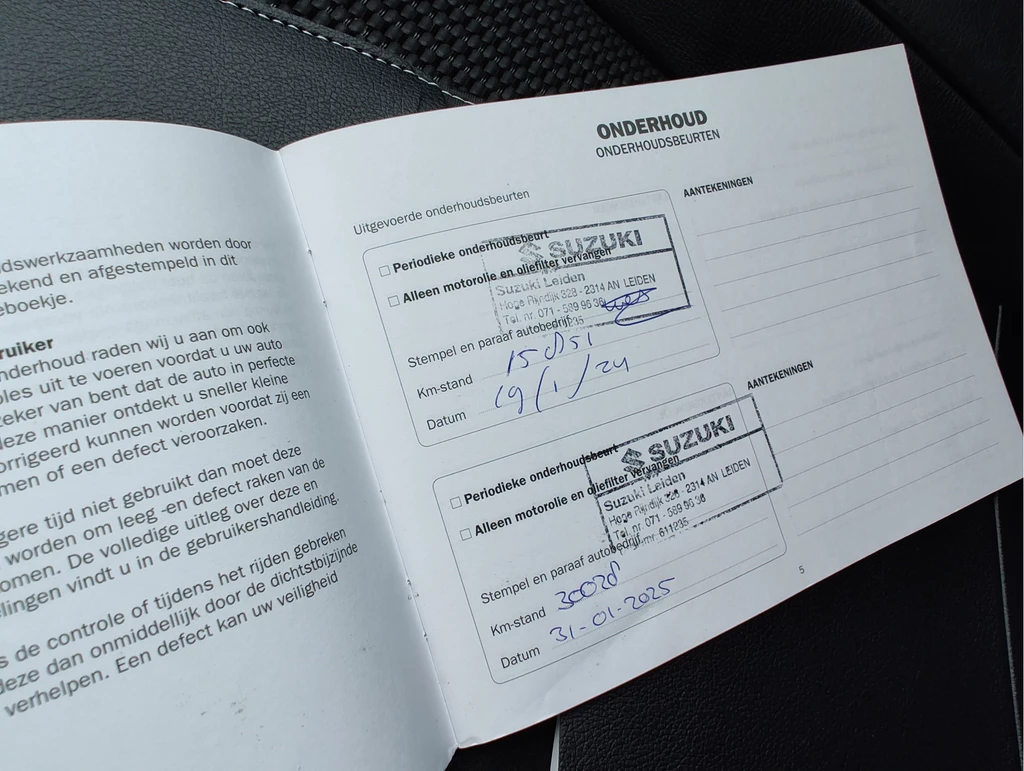 dswerkzaamheden worden door
ekend en afgestempeld in dit
eboekje.
ruiker
nderhoud raden wij u aan om ook
oles uit te voeren voordat u uw auto
zeker van bent dat de auto in perfecte
deze manier ontdekt u sneller kleine
orrigeerd kunnen worden voordat zij een
men of een defect veroorzaken.
gere tijd niet gebruikt dan moet deze
worden om leeg -en defect raken van de
omen. De volledige uitleg over deze en
llingen vindt u in de gebruikershandleiding.
s de controle of tijdens het rijden gebreken
deze dan onmiddellijk door de dichtstbijzijnde
verhelpen. Een defect kan uw veiligheid
ONDERHOUD
ONDERHOUDSBEURTEN
Uitgevoerde onderhoudsbeurten
AANTEKENINGEN
Periodieke onderhoudsbeurt
SUZUKI
Alleen motorolie en oliefilter vervangen
Suzuki Leiden
Hoge Rijndijk 328 - 2314 AN LEIDEN
Tel. nr. 071 - 589 96 36
Stempel en paraaf autobedrijf
Km-stand
Datum 19/1/24
AANTEKENINGEN
Periodieke onderhoudsbeurt
SUZUKI
Alleen motorolie en oliefilter vervangen
Suzuki Leiden
Hoge Rijndijk 328 - 2314 AN LEIDEN
Tel. nr. 071 - 589 96 36
Stempel en paraaf autobedrijf 611235
Km-stand
Datum 31-01-2025
5